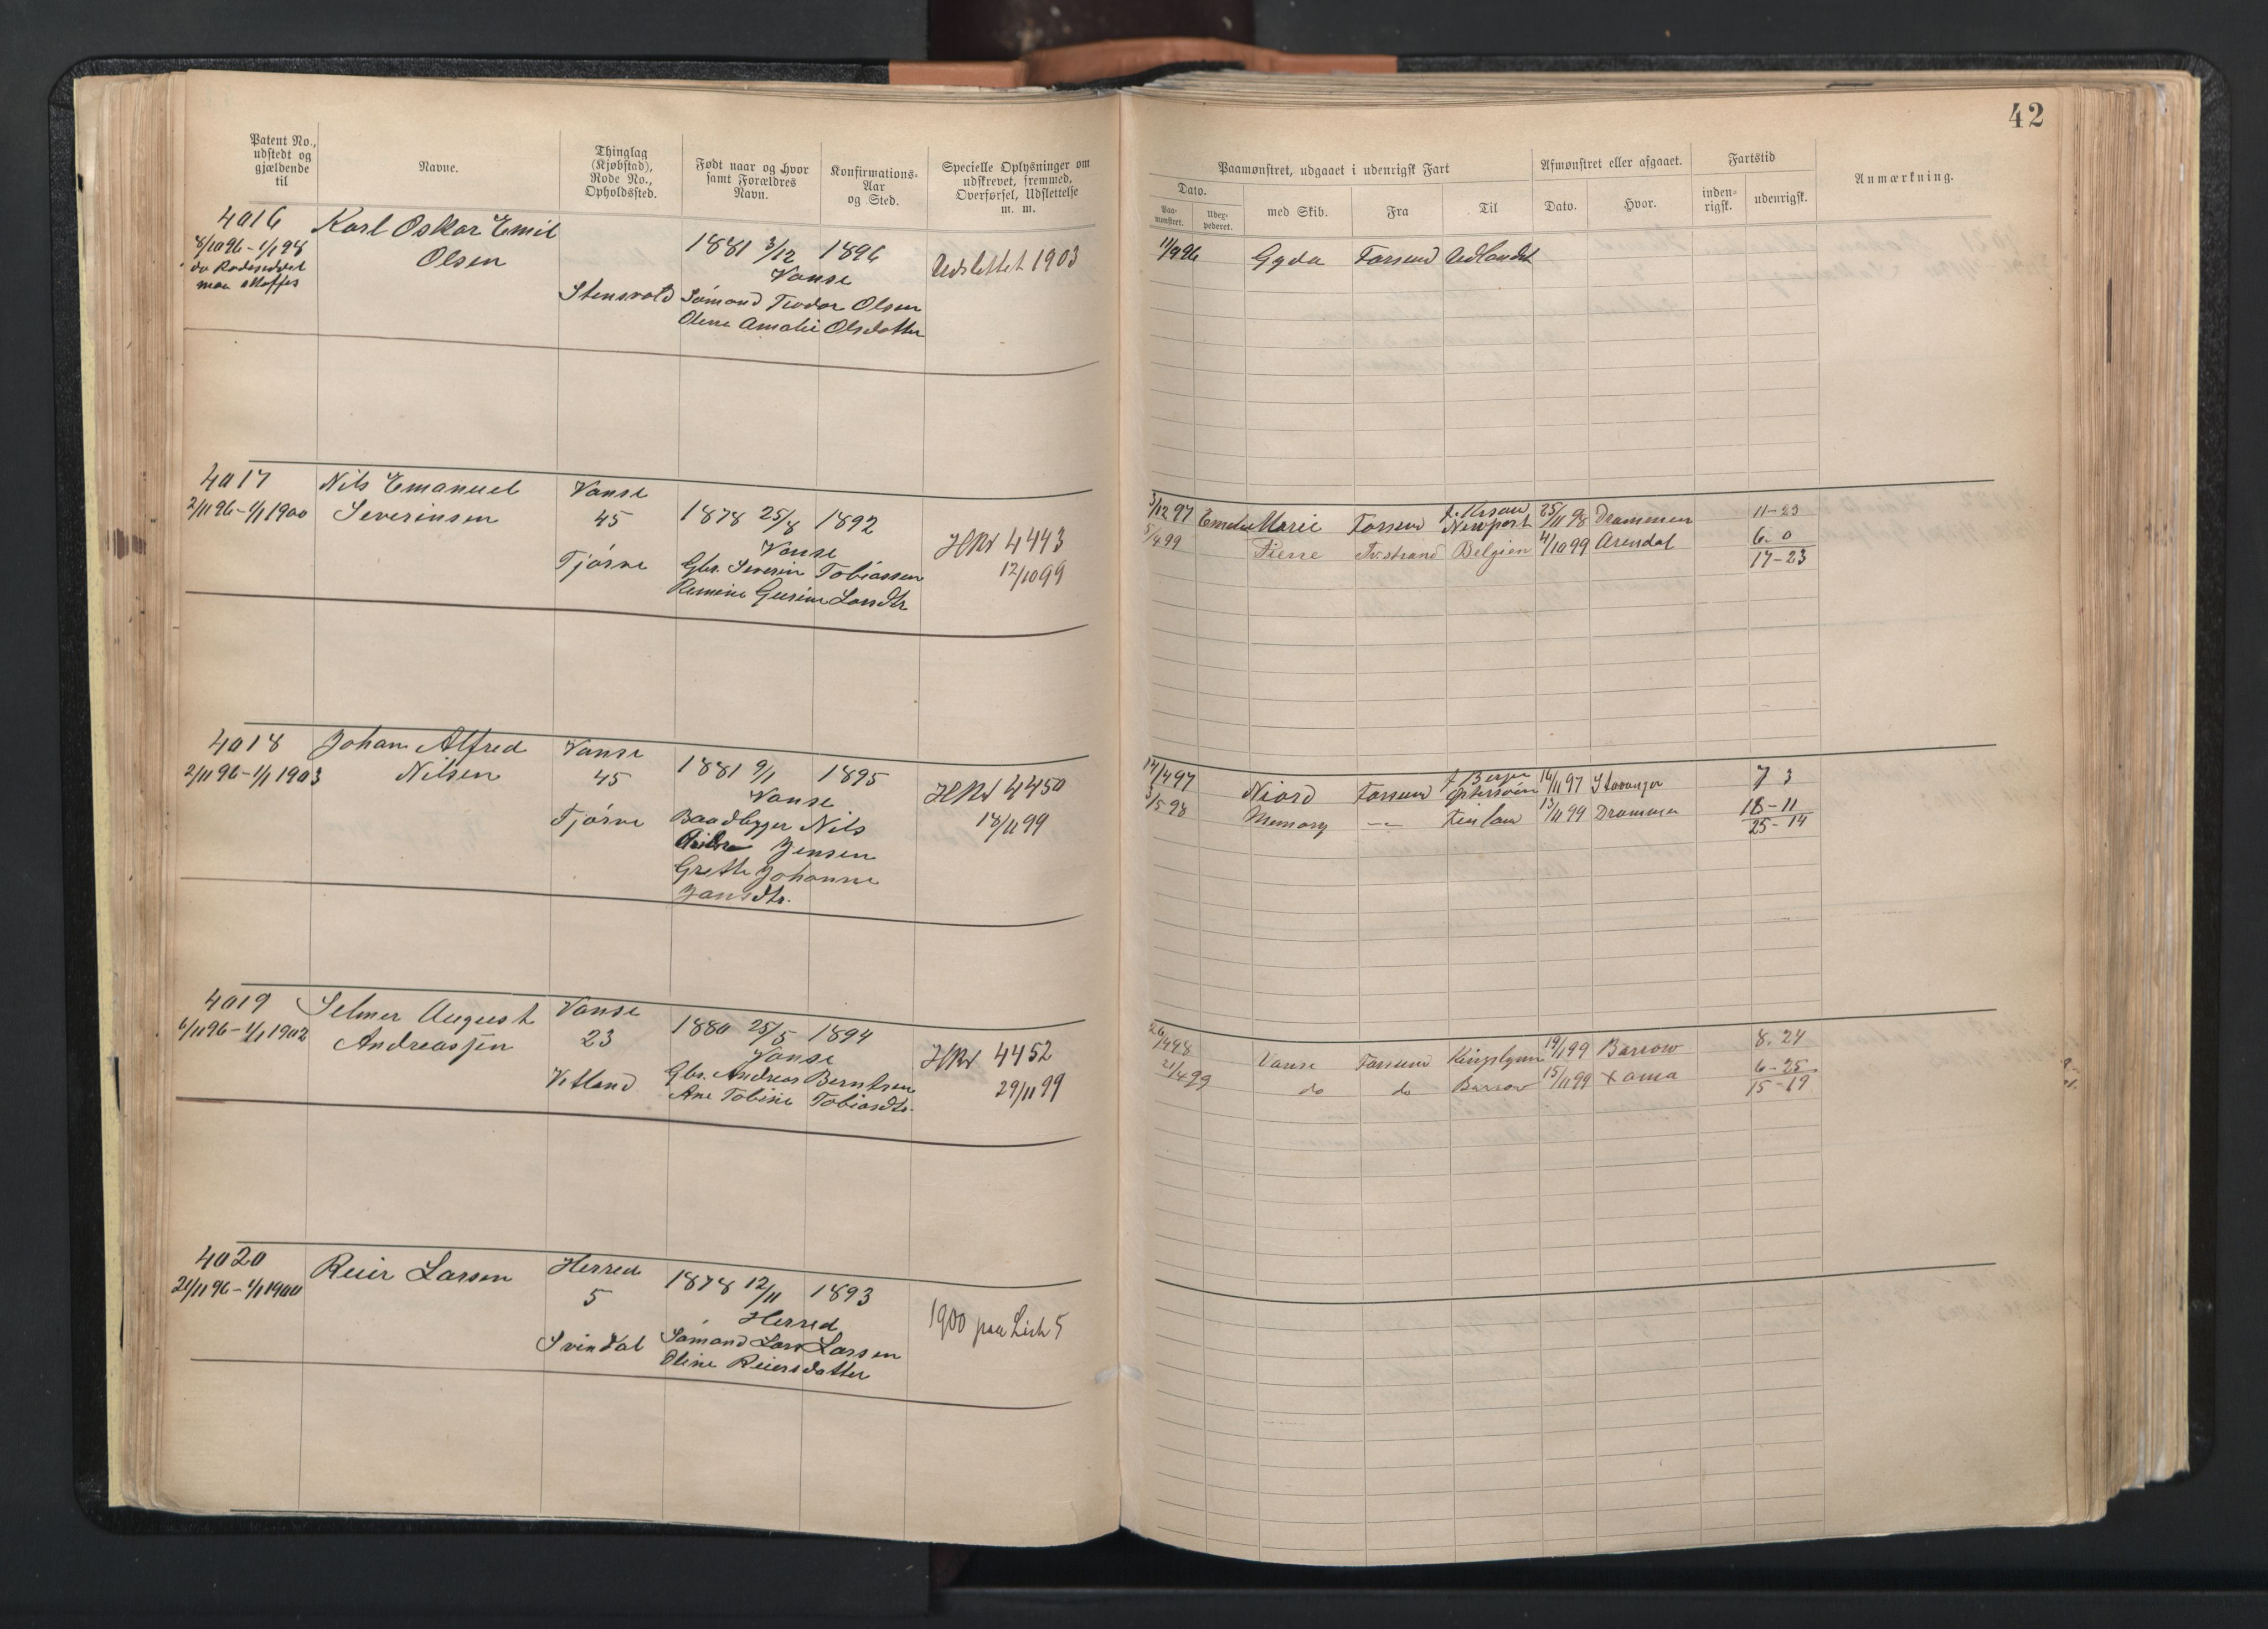 42
Patent No., udstedt og gjældende til
Navne.
Thinglag (Kjøbstad), Rode No., Opholdssted.
Født naar og hvor samt Forældres Navn.
Konfirmations-Aar og Sted.
Specielle Oplysninger om udskrevet, fremmed, Overførsel, Udslettelse m. m.
Paamønstret, udgaaet i udenrigsk Fart
Dato.
Paa-mønstret.
Udex-pederet.
med Skib.
Fra
Til
Afmønstret eller afgaaet.
Dato.
Hvor.
Fartstid
inden-rigsk.
udenrigsk.
Anmærkning.
4016
8/10 96 - 1/1 98
Karl Oskar Emil
Olsen
Stensvold
1881 3/12 1896
Vanse
Sømand Teodor Olsen
Olene Amalie Olsdatter
Udslettet 1903
11/9 96 Gyda Farsund Udlandet
4017
2/11 96 - 1/1 1900
Nils Emanuel
Severinsen
Vanse
45
Tjørve
1878 25/8 1892
Vanse
Gbr. Severin Tobiassen
HRv 4443
12/10 99
3/12 97 Emelie Marie Farsund Newport 25/11 98 Drammen 11-23
5/4 99 Fierre Tv.strand Belgien 4/10 99 Arendal 6-0
17-23
4018
2/11 96 - 1/1 1903
Johan Alfred
Nilsen
Vanse
45
Tjørve
1881 9/1 1895
Vanse
Baadbygger Nils
Jensen
Grethe Johanne
Jansdtr.
HRv 4450
18/11 99
14/4 97 Niord Farsund 16/11 97 Stavanger 7 3
3/5 98 Memory — 13/11 99 Drammen 18-11
25-14
4019
6/11 96 - 1/1 1902
Selmer August
Andreassen
Vanse
23
Vetland
1880 25/5 1894
Vanse
Gbr. Andreas Berntsen
Ane Tobine Tobiasdtr.
HRv 4452
29/11 99
26/4 98 Vanse Farsund Kingslynn 19/1 99 Barrow 8.24
21/4 99 do do Barrow 15/11 99 6-25
15-19
4020
21/11 96 - 1/1 1900
Reier Larsen
Herred
5
Svindal
1878 12/11 1893
Herred
Sømand Lars Larsen
Oline Reiersdatter
1900 paa List 5